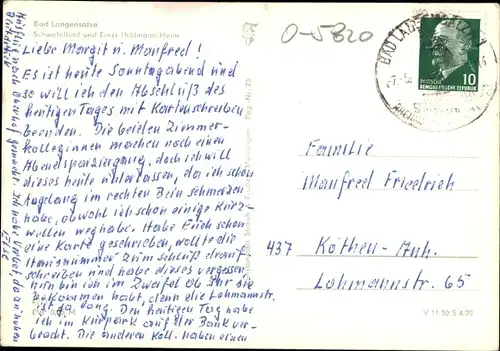 Bad Langensalza
Schwefelbad und Ernst-Thälmann-Heim
O-5820
BAD LANGENSALZA
10
DEUTSCHE
DEMOKRATISCHE REPUBLIK
Liebe Margit u. Manfred!
Es ist heute Sonntagabend und
so will ich den Abschluß des
heutigen Tages mit Kartenschreiben
beenden. Die beiden Zimmer-
kolleginnen machen noch einen
Abendspaziergang, doch ich will
dieses heute unterlassen, da ich schon
tagelang im rechten Bein schmerzen
habe, obwohl ich schon einige Kurz-
wellen weg habe. Habe Euch schon
eine Karte geschrieben, wollte die
Hausnummer zum schluß drauf
schreiben und habe dieses vergessen
nun bin ich im Zweifel ob Ihr sie
bekommen habt, denn die Lohmannstr.
ist ja lang. Den heutigen Tag habe
ich im Kurpark auf der Bank ver-
bracht. Die anderen Koll. haben einen
Ausflug nach Oberhof gemacht. Ich habe Verbot, da zu hohen
Blutdruck
Else
Familie
Manfred Friedrich
437 Köthen-Anh.
Lohmannstr. 65
V 11 50 S 4/70